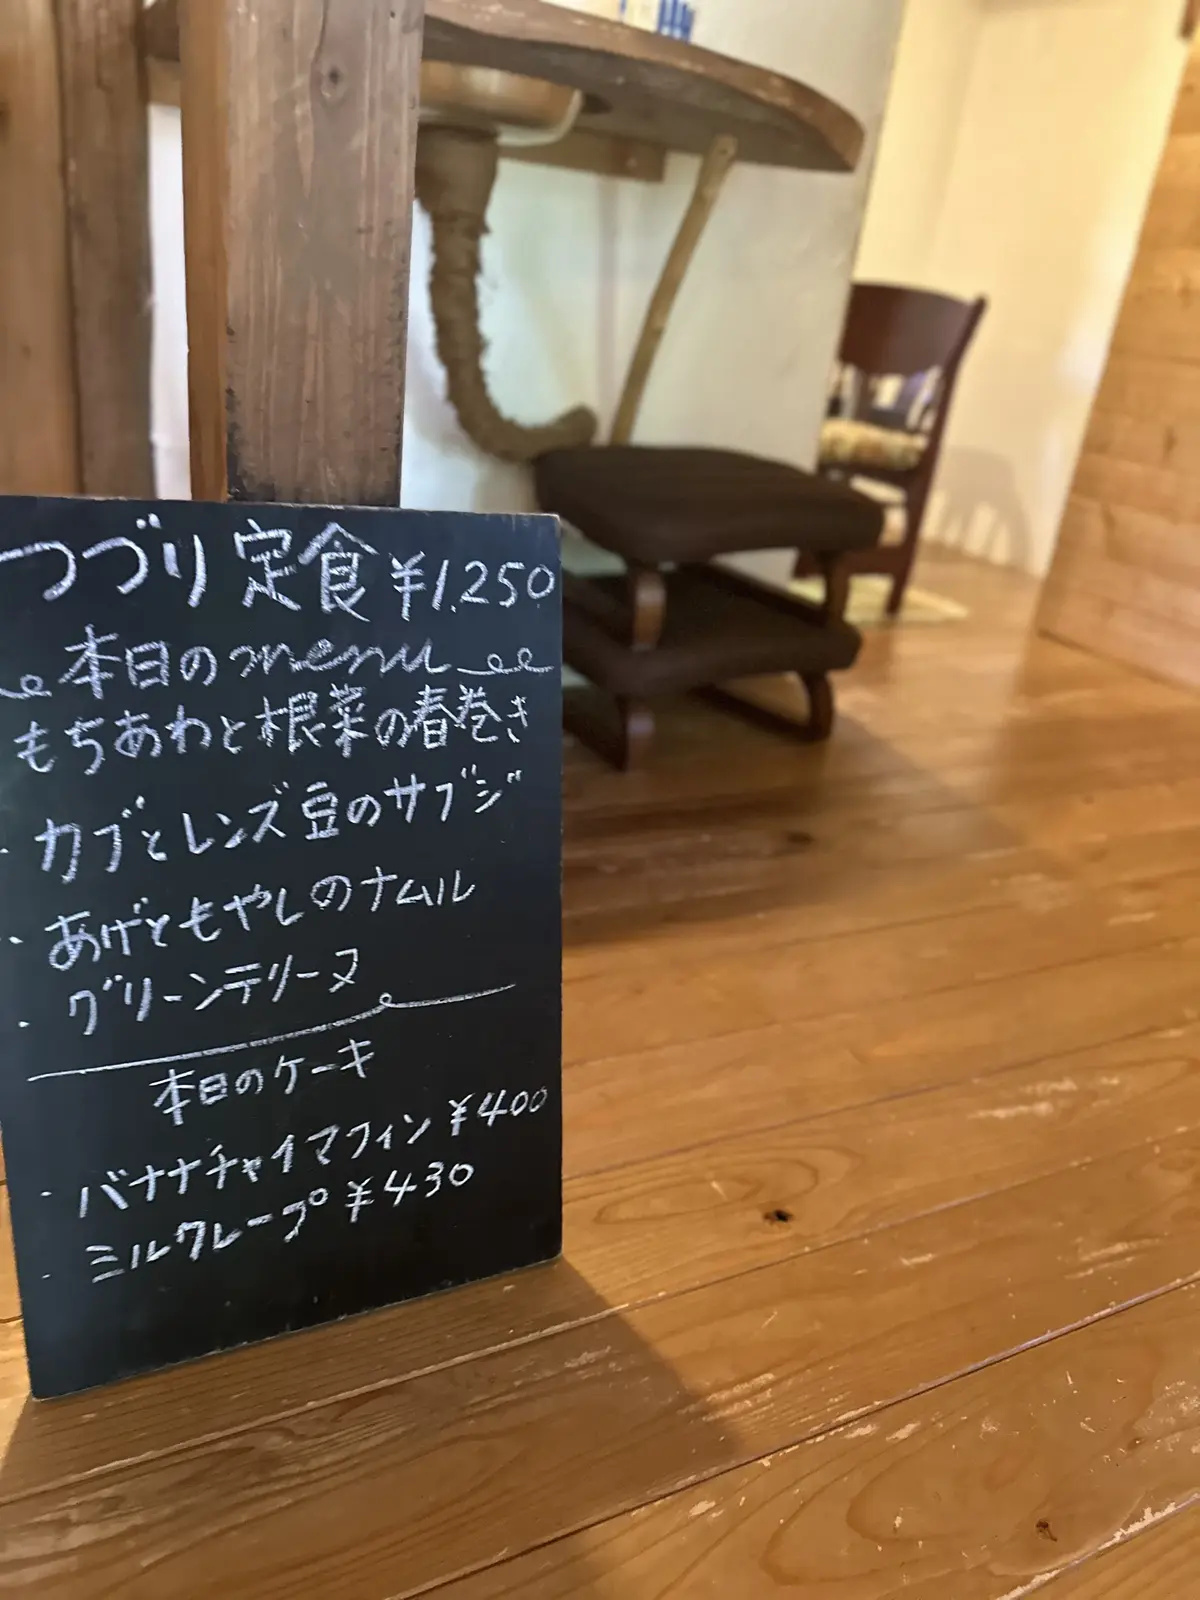 つづり定食 ¥1.250
本日のmenu
もちあわと根菜の春巻き
・カブとレンズ豆のサブジ
・あげともやしのナムル
・グリーンテリーヌ
本日のケーキ
・バナナチャイマフィン ¥400
・ミルクレープ ¥430